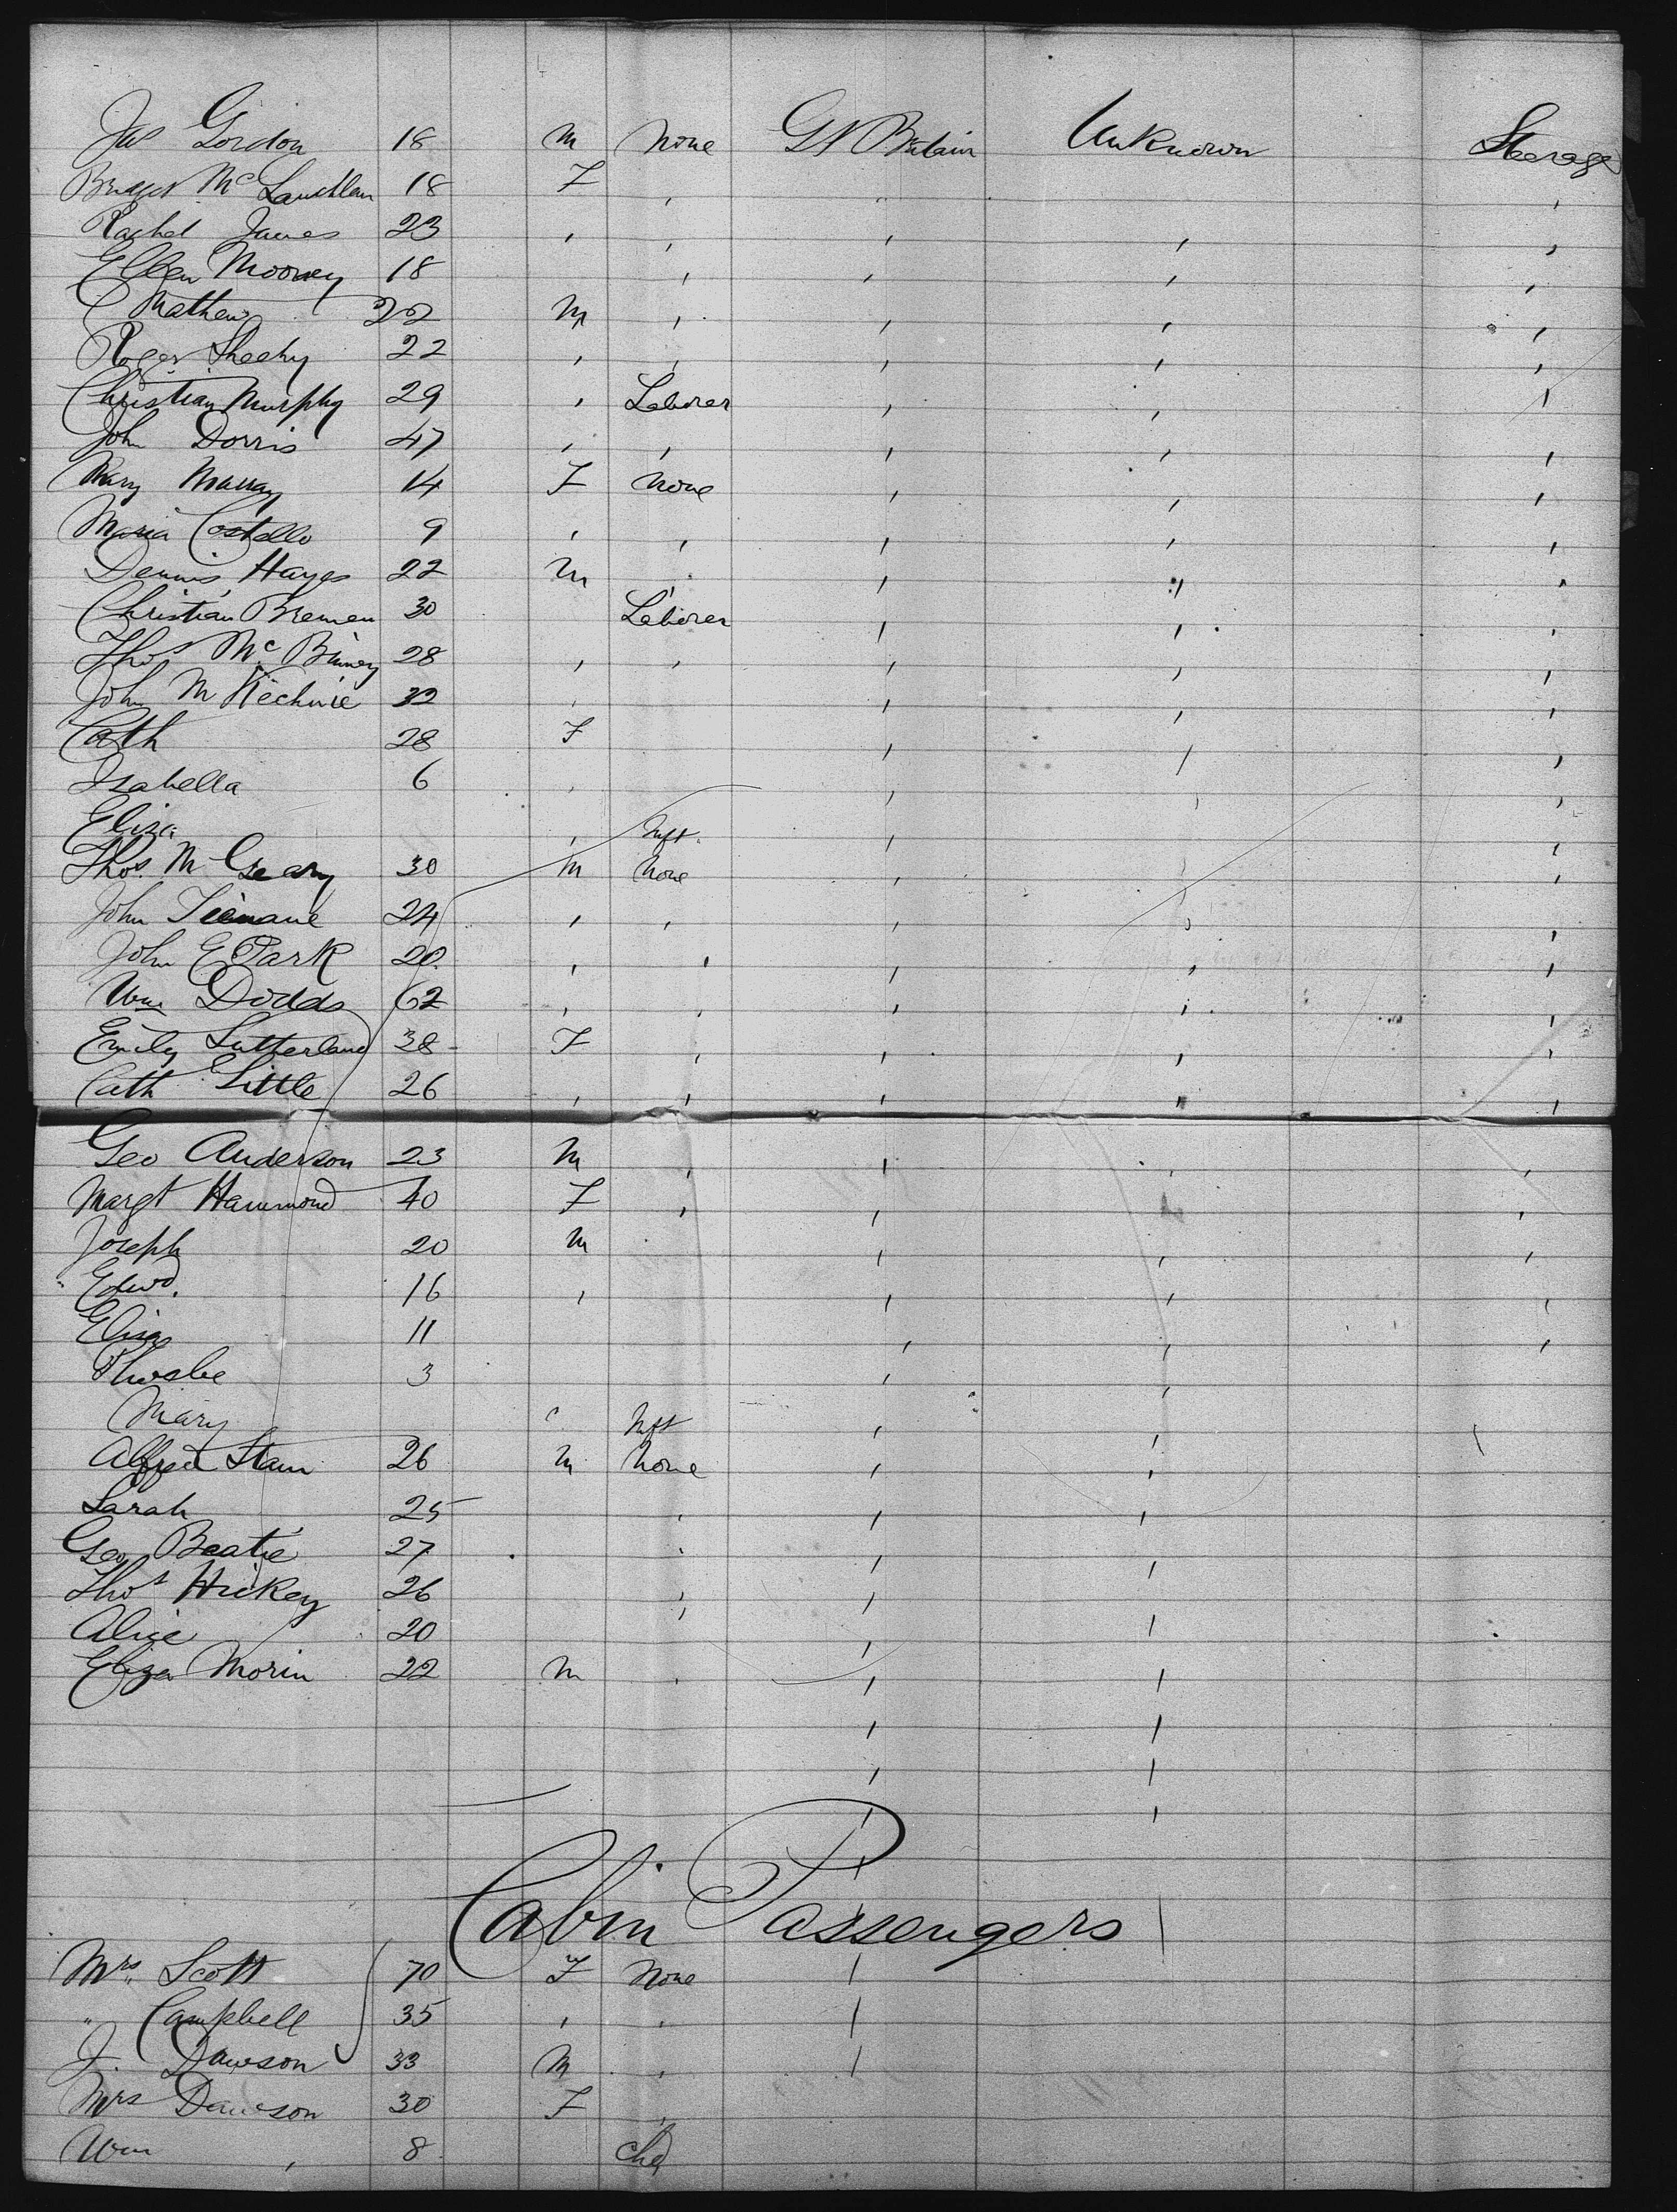 Jas Gordon 18 M None Gt Britain Unknown Steerage
Bridget Mc Lauchlan 18 F , , ,
Rachel James 23 , , , , ,
Ellen Mooney 18 , , , ,
Mathew 22 M , , , ,
Roger Sheehy 22 , , , , ,
Christian Murphy 29 , Laborer , , ,
John Dorris 47 , , , , ,
Mary Murray 14 F None , , ,
Maria Costello 9 , , , , ,
Dennis Hayes 22 M , , , ,
Christian Bremen 30 Laborer , , ,
Thos Mc Binney 28 , , , , ,
John M Kechnie 32 , , , ,
Cath 28 F , , ,
Isabella 6 , , , ,
Eliza , Inft , ,
Thos. M Geary 30 M None , ,
John 24 , , , , ,
John E Park 20 , , , , ,
Wm Dodds 62 , , , , ,
Emily Sutherland 38 F , , , ,
Cath Little 26 , , , , ,
Geo Anderson 23 M , , , ,
Margt Hammond 40 F , , ,
Joseph 20 M , , ,
" Edwd. 16 , , , ,
Eliza 11 , , ,
Phoebe 3 , ,
Mary , Inft , ,
Alfred Stam 26 M None , ,
Sarah 25 , , ,
Geo Beatie 27 , , ,
Thos Hickey 26 , ,
Alice 20 , , ,
Eliza Morin 22 M , , ,
, ,
, ,
, ,
Cabin Passengers
Mrs Scott 70 F None ,
" Campbell 35 , , ,
J. Dawson 33 M , ,
Mrs Dawson 30 F ,
Wm , 8 Chd